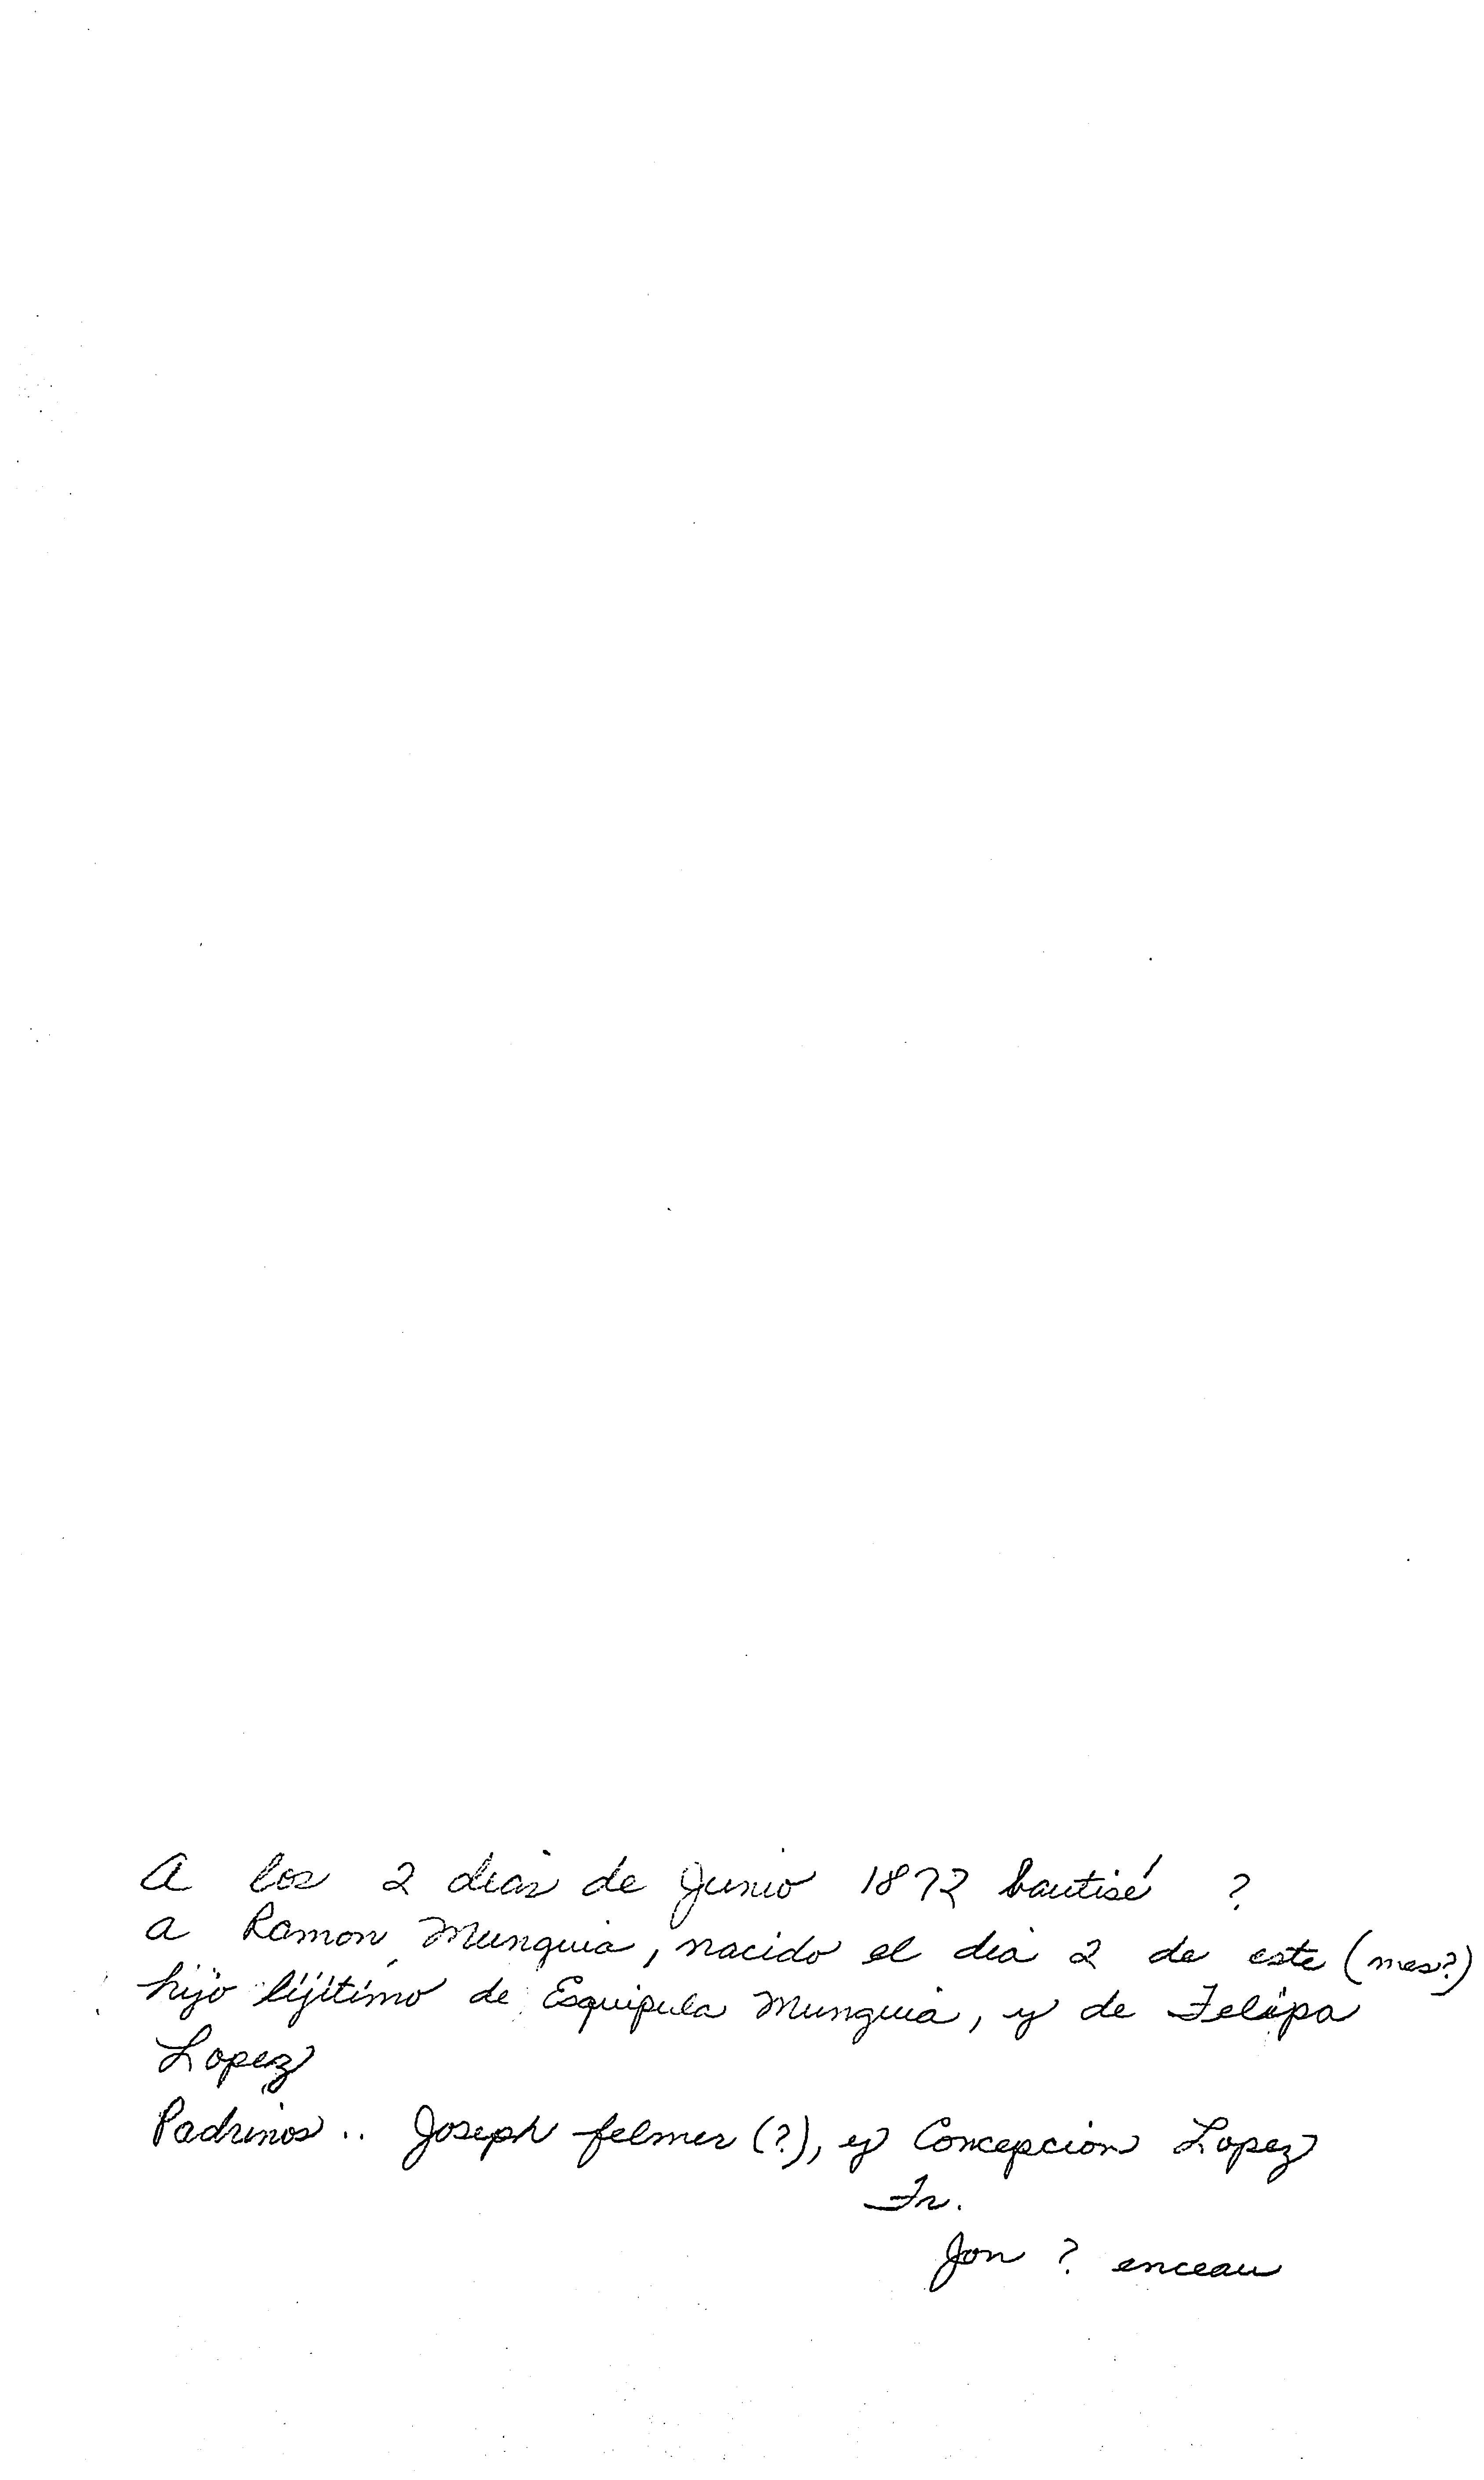 A los 2 dias de Junio 1872 bautisé ?
a Ramon Munguia, nacido el dia 2 de este (mes?)
hijo lijitimo de Esquipula Munguia, y de Felipa
Lopez
Padrinos .. Joseph felmer (?), y Concepcion Lopez
Fr.
Jon ? enceau